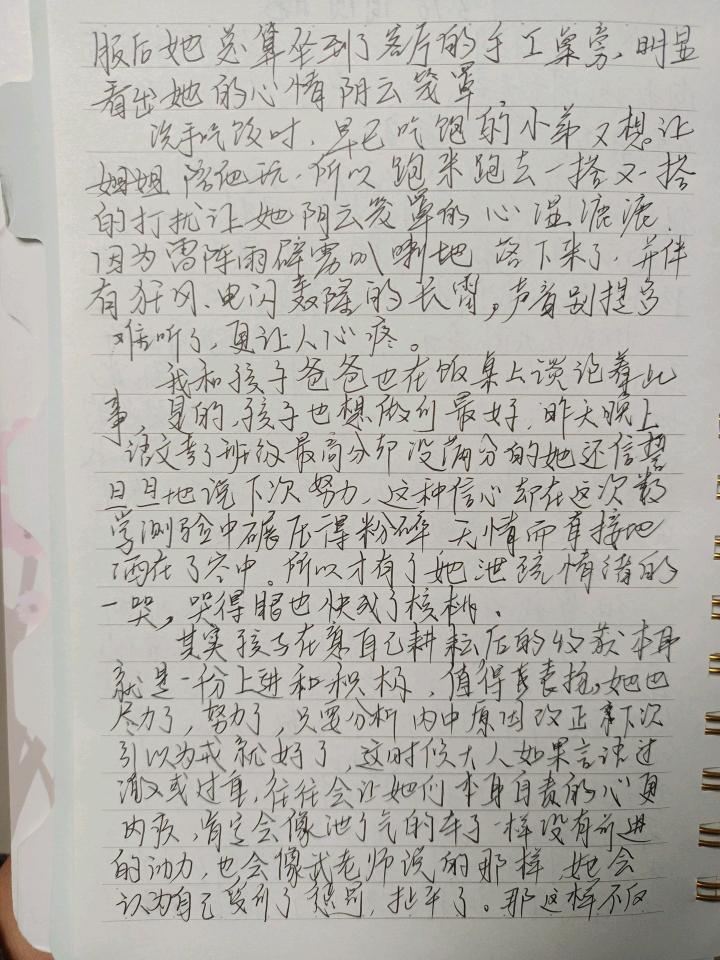 服后她总算坐到了客厅的手工桌旁、明显
看出她的心情阴云笼罩、
洗手吃饭时，早已吃饱的小弟又想让
姐姐陪他玩、所以跑来跑去一搭又一搭
的打扰让她阴云笼罩的心湿漉漉、
因为雷阵雨噼雳叭喇地落下来了、并伴
有狂风、电闪轰隆的长雷，声音别提多
难听了，更让人心疼。
我和孩子爸爸也在饭桌上谈论着此
事，是的，孩子也想做到最好，昨天晚上
语文考了班级最高分却没满分的她还信誓
旦旦地说下次努力、这种信心却在这次数
学测验中碾压得粉碎 无情而直接地
洒在了空中。所以才有了她泄疏情绪的
一哭，哭得眼也快成了核桃、
其实孩子在意自己耕耘后的收获本身
就是一份上进和积极，值得表扬，她也
尽力了，努力了，只要分析内中原因改正下次
引以为戒就好了，这时候大人如果言语过
激或过重，往往会让她们本身自责的心更
内疚，肯定会像泄了气的车子一样没有前进
的动力，也会像武老师说的那样，她会
认为自己受到了惩罚，扯平了。那这样不仅